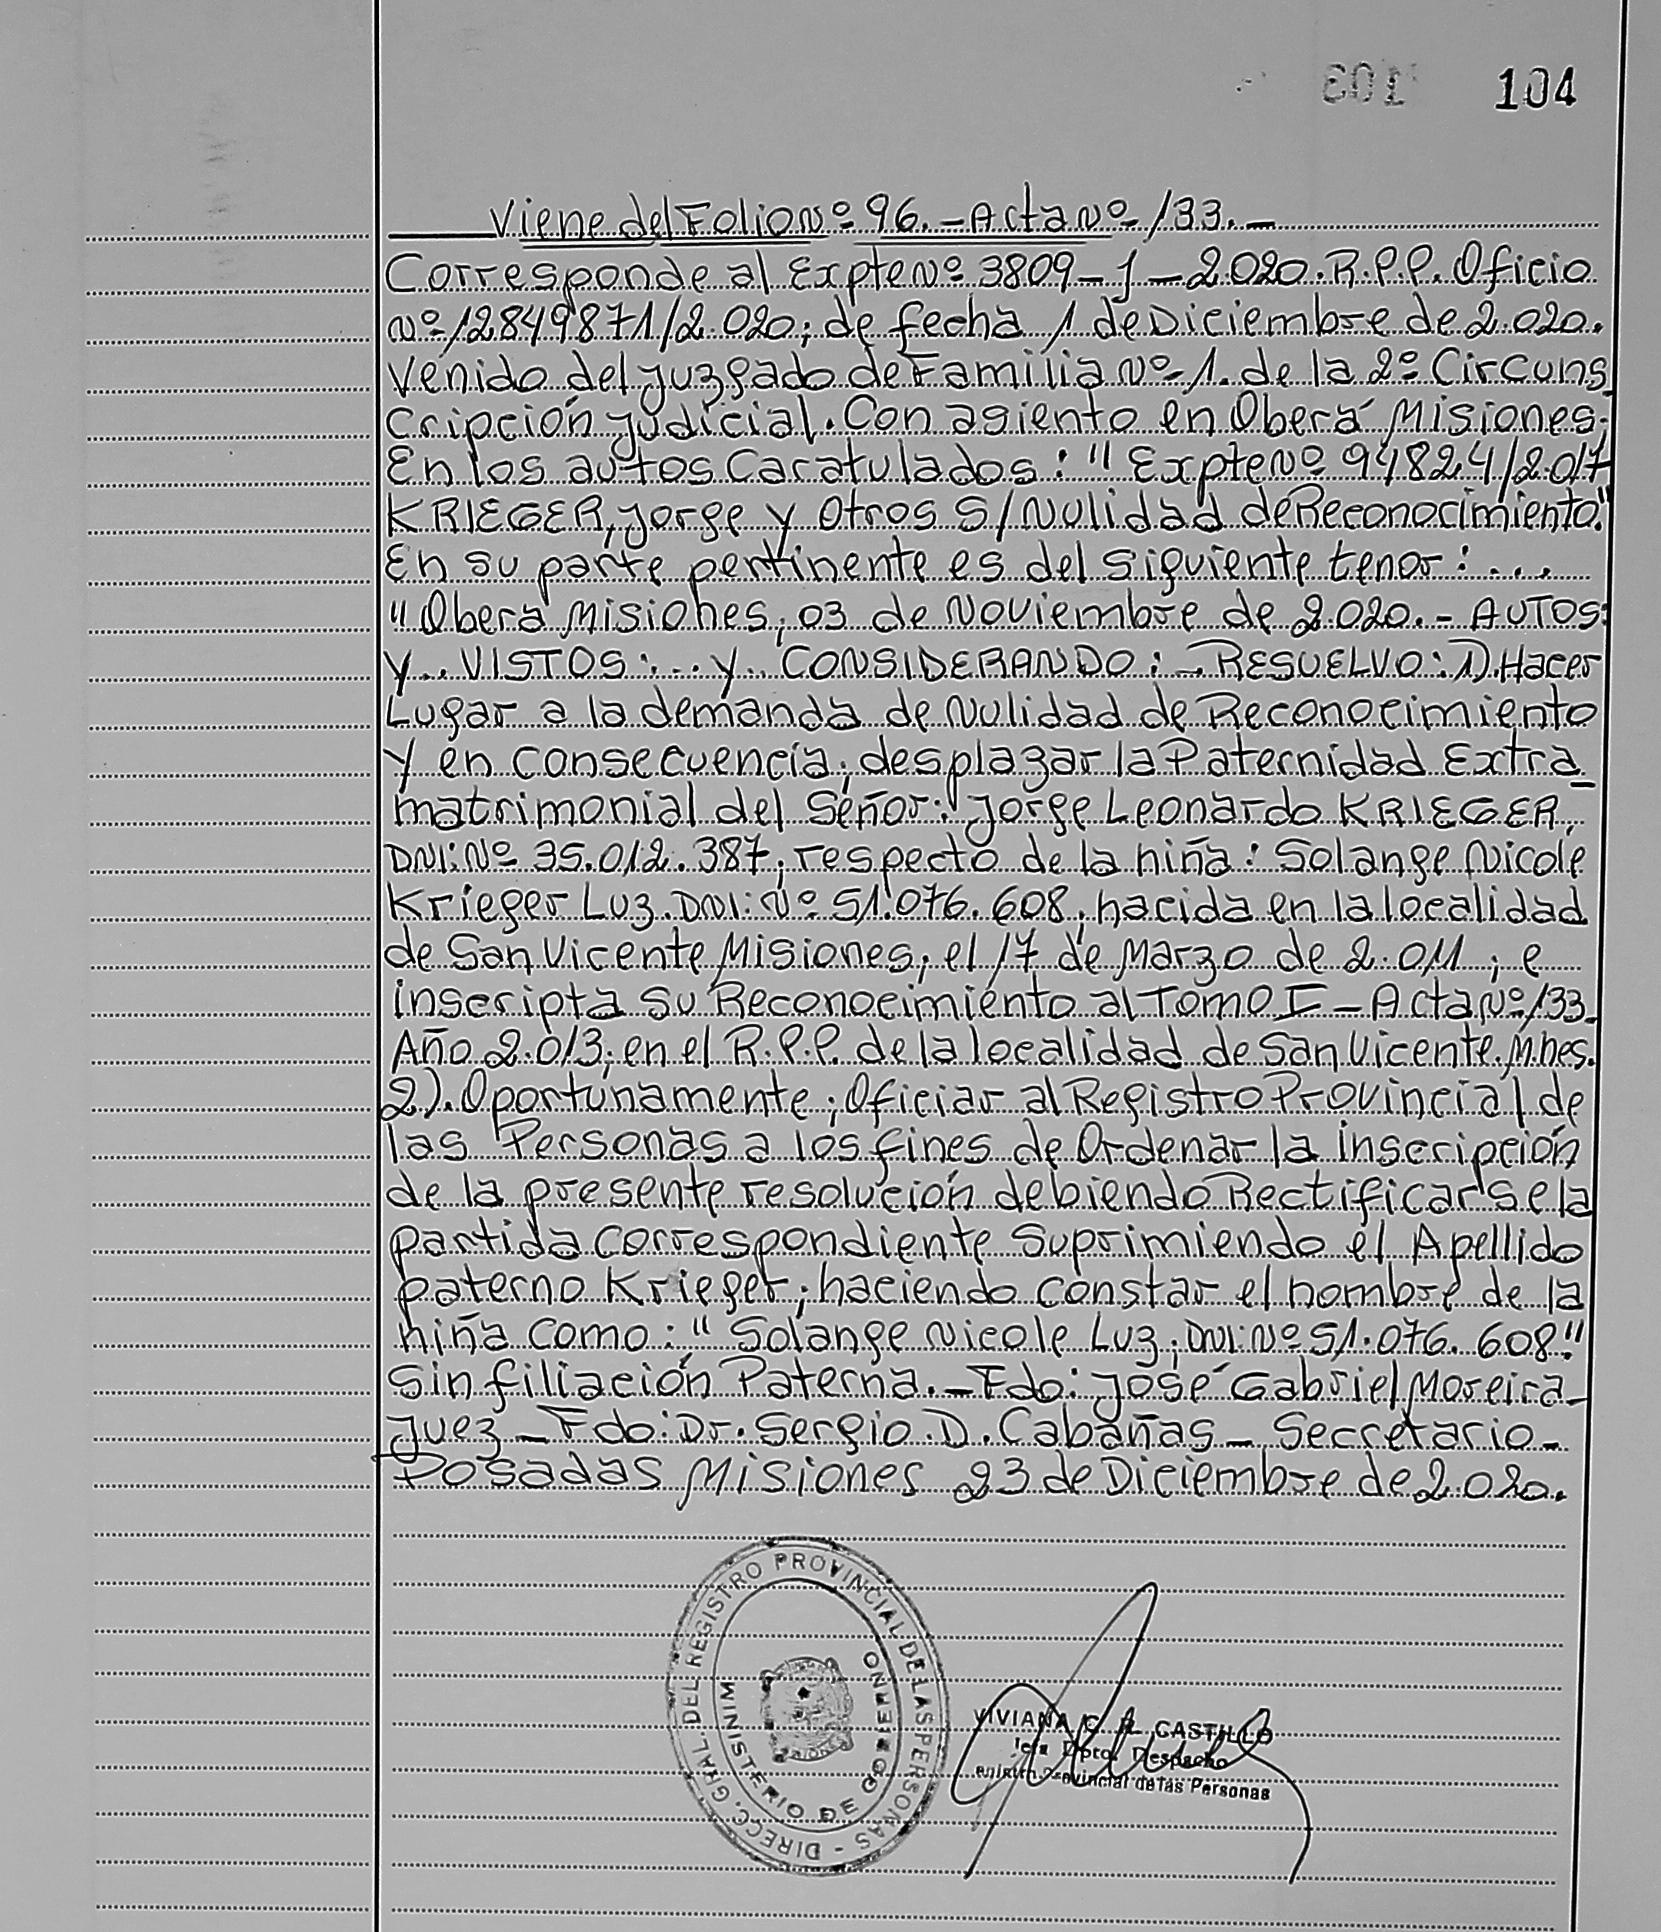 103 104
Viene del Folio Nº 96.- Acta Nº 133.-
Corresponde al Expte Nº 3809-J-2.020.R.P.P. Oficio
Nº 12849871/2.020; de fecha 1 de Diciembre de 2.020.
Venido del Juzgado de Familia Nº 1. de la 2º Circuns
cripción Judicial. Con asiento en Oberá Misiones;
En los autos Caratulados: "Expte Nº 94824/2.017
KRIEGER, Jorge y Otros S/Nulidad de Reconocimiento"
En su parte pertinente es del siguiente tenor:....
"Oberá Misiones; 03 de Noviembre de 2.020.- AUTOS
Y.. VISTOS:...Y.. CONSIDERANDO:- RESUELVO: 1). Hacer
Lugar a la demanda de Nulidad de Reconocimiento
Y en consecuencia; desplazar la Paternidad Extra
matrimonial del Señor: Jorge Leonardo KRIEGER,
DNI: Nº 35.012.387, respecto de la niña: Solange Nicole
Krieger Luz. DNI: Nº 51.076.608, nacida en la localidad
de San Vicente Misiones; el 17 de Marzo de 2.011; e
inscripta su Reconocimiento al Tomo I - Acta Nº 133.
Año 2.013; en el R.P.P. de la localidad de San Vicente. Mnes.
2). Oportunamente; Oficiar al Registro Provincial de
las Personas a los fines de Ordenar la inscripción
de la presente resolución debiendo Rectificarse la
partida correspondiente Suprimiendo el Apellido
paterno Krieger; haciendo constar el nombre de la
niña como: "Solange Nicole Luz; DNI: Nº 51.076.608"
Sin filiación Paterna.- Fdo: José Gabriel Moreira-
Juez - Fdo: Dr. Sergio D. Cabañas - Secretario -
Posadas Misiones 23 de Diciembre de 2.020.
DIRECC. GRAL. DEL REGISTRO PROVINCIAL DE LAS PERSONAS -
MINISTERIO DE GOBIERNO
VIVIANA C. R. CASTILLO
Jefa Dpto. Despacho
Registro Provincial de las Personas